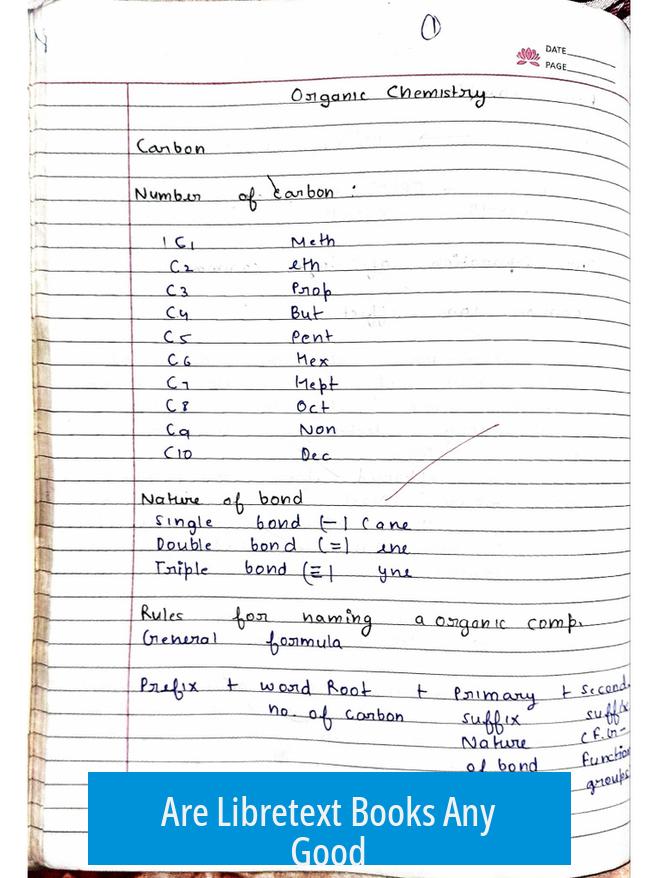 ①
DATE
PAGE
Organic Chemistry
Carbon
Number of carbon :
C1 Meth
C2 eth
C3 Prop
C4 But
C5 Pent
C6 Hex
C7 Hept
C8 Oct
C9 Non
C10 Dec
Nature of bond
Single bond (-) (ane
Double bond (=) ene
Triple bond (≡) yne
Rules for naming a organic comp.
General formula
Prefix + word Root + Primary + second.
no. of carbon suffix suffix
Nature (F.Gr-
of bond Function
groups
Are Libretext Books Any
Good